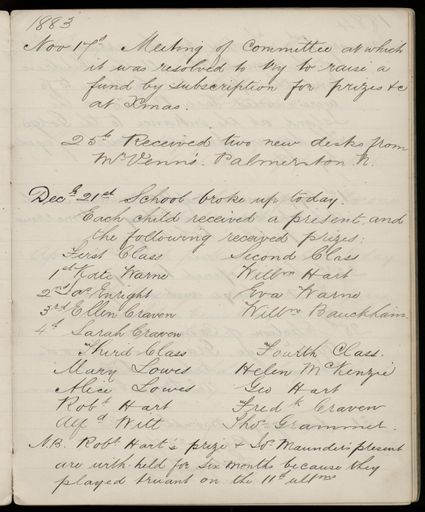 1883
Nov 17th Meeting of Committee at which
it was resolved to try to raise a
fund by subscription for prizes &c
at Xmas.
25th Received two new desks from
Mr Venns. Palmerston N.
Decr 21st School broke up today.
Each child received a present, and
the following received prizes:
First Class Second Class
1st Kate Warne Willm Hart
2nd Jas Enright Eva Warne
3rd Ellen Craven Willm Bauckham
4th Sarah Craven
Third Class Fourth Class.
Mary Lowes Helen McKenzie
Alice Lowes Geo Hart
Robt Hart Fredk Craven
Alfd Witt Thos Grammer.
N.B. Robt Hart's prize & Maunder's present
are with-held for six months because they
played truant on the 11th ultmo